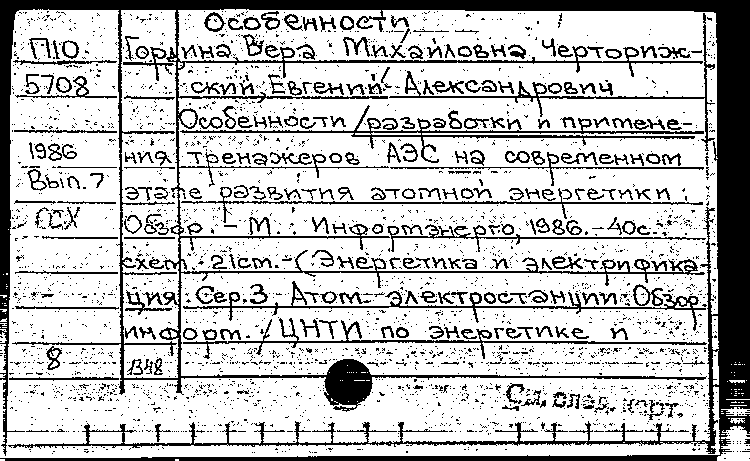 Особенности
П10 Гордина, Вера Михайловна, Черториж-
5708 ский, Евгений Александрович
Особенности / разработки и примене-
1986 ния тренажеров АЭС на современном
Вып. 7 этапе развития атомной энергетики :
ССХ Обзор. - М. : Информэнерго, 1986. - 40с. :
схем. ; 21см. - (Энергетика и электрифика-
ция. Сер. 3, Атом. электростанции: Обзор.
информ. / ЦНТИ по энергетике и
8 1348
См. след. карт.